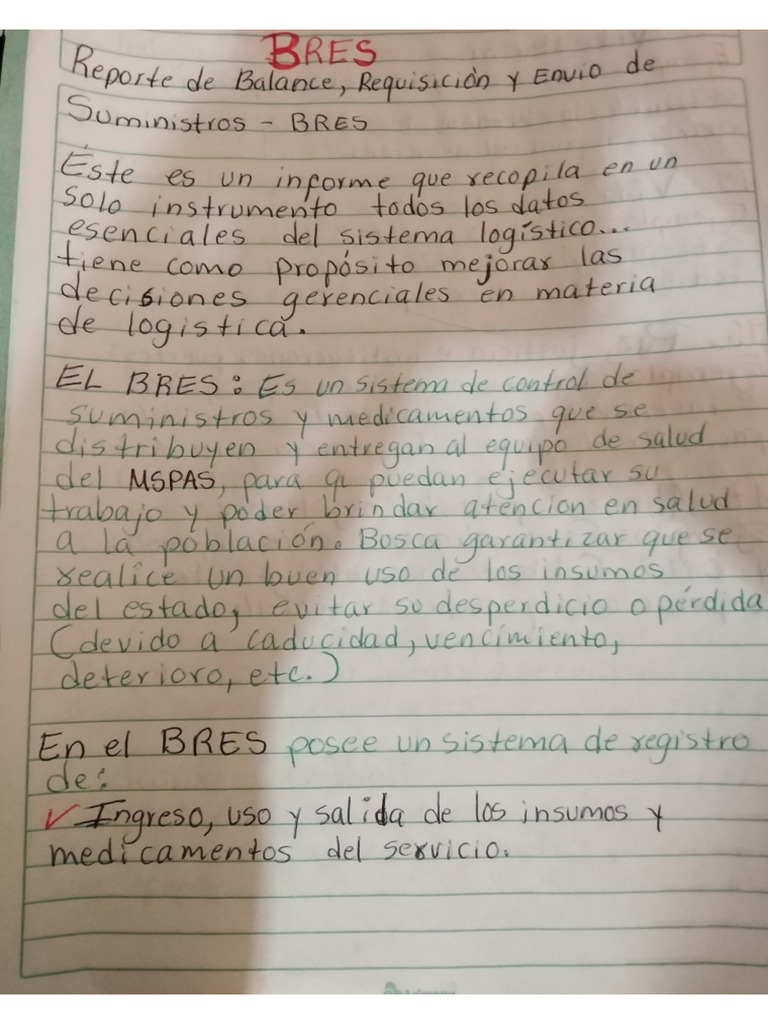 BRES
Reporte de Balance, Requisición y Envio de
Suministros - BRES
Éste es un informe que recopila en un
solo instrumento todos los datos
esenciales del sistema logístico...
tiene como propósito mejorar las
decisiones gerenciales en materia
de logistica.
EL BRES: Es un sistema de control de
suministros y medicamentos que se
distribuyen y entregan al equipo de salud
del MSPAS, para q puedan ejecutar su
trabajo y poder brindar atencion en salud
a la población. Busca garantizar que se
realice un buen uso de los insumos
del estado, evitar su desperdicio o pérdida
(devido a caducidad, vencimiento,
deterioro, etc.)
En el BRES posee un sistema de registro
de:
✓ Ingreso, uso y salida de los insumos y
medicamentos del servicio.